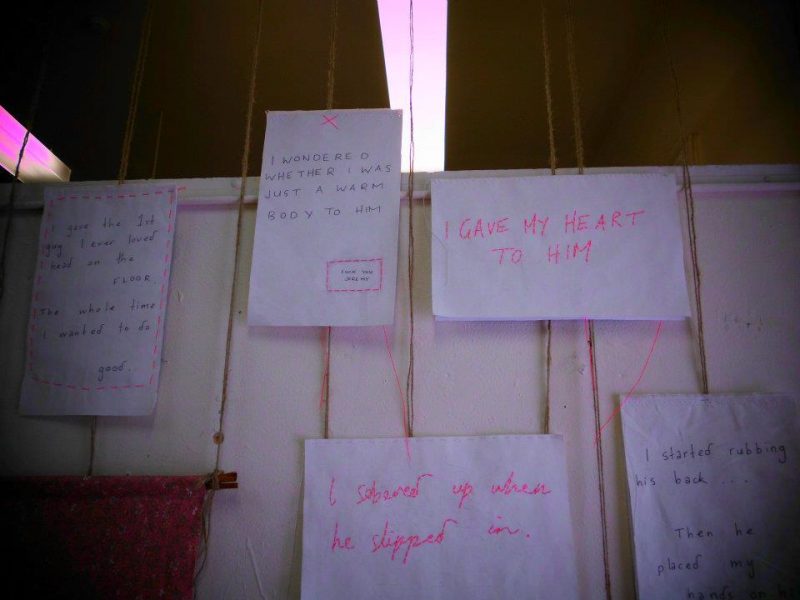 I gave the 1st
guy I ever loved
head on the
FLOOR.
The whole time
I wanted to do
good.
X
I WONDERED
WHETHER I WAS
JUST A WARM
BODY TO HIM
FUCK YOU
JEREMY
I GAVE MY HEART
TO HIM
I sobered up when
he slipped in.
I started rubbing
his back...
Then he
placed my
hands on